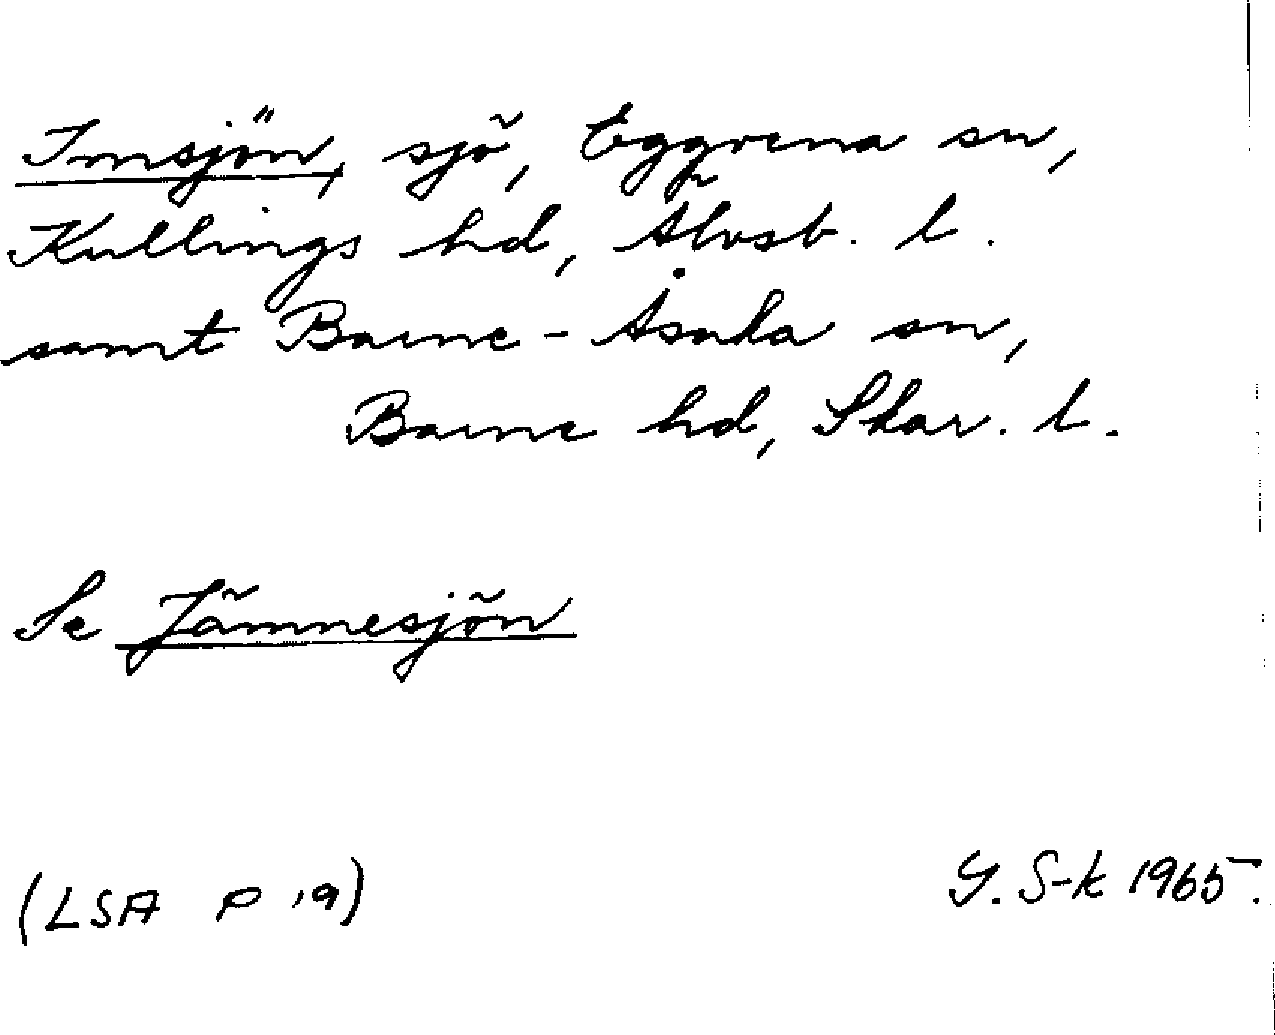 Imsjön, sjö, Eggvena sn,
Kullings hd, Älvsb. l.
samt Barne-Åsaka sn,
Barne hd, Skar. l.
Se Jämnesjön
(LSA P 19)
G. S-k 1965.